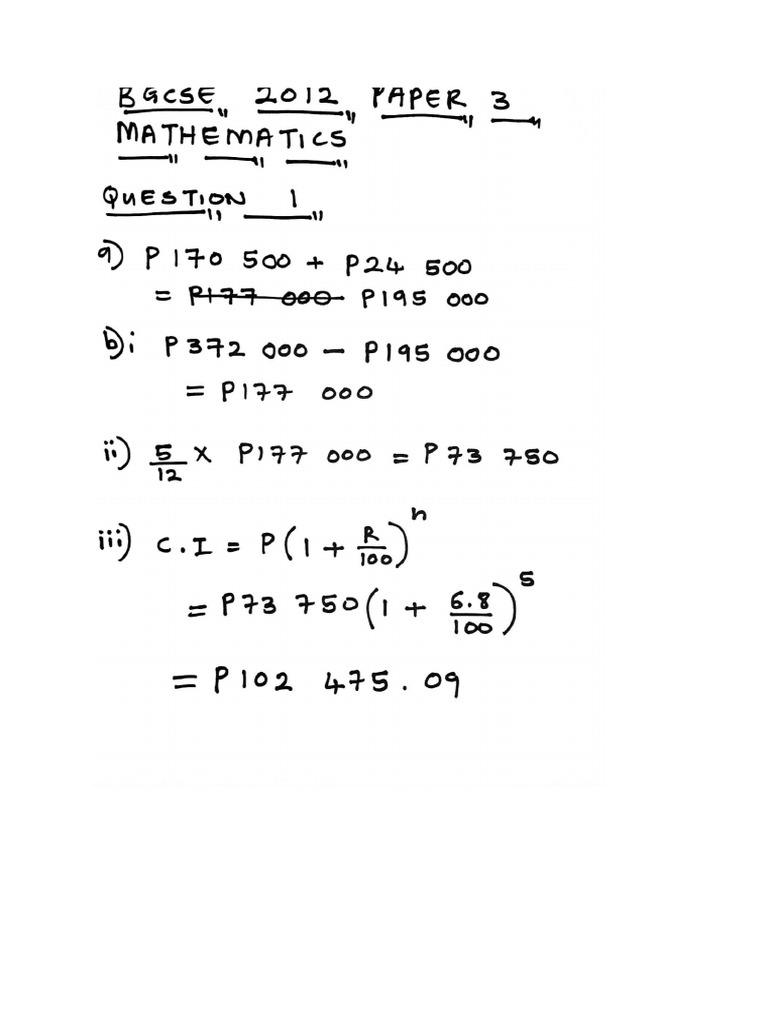 BGCSE 2012 PAPER 3
MATHEMATICS
QUESTION 1
a) P170 500 + P24 500
= P177 000 P195 000
b)i P372 000 – P195 000
= P177 000
ii) 5/12 x P177 000 = P73 750
iii) C.I = P(1 + R/100)^n
= P73 750(1 + 6.8/100)^5
= P102 475.09